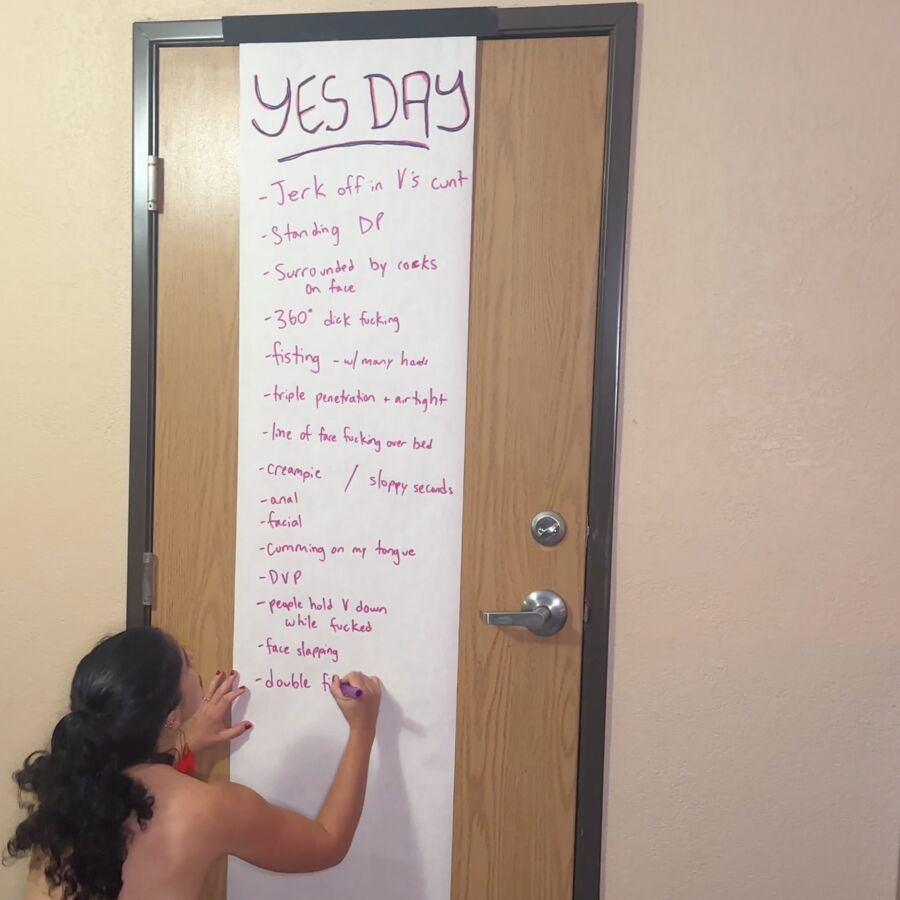 YES DAY
- Jerk off in V's cunt
- Standing DP
- Surrounded by cocks
on face
- 360° dick fucking
- fisting - w/ many hands
- triple penetration + airtight
- line of face fucking over bed
- creampie / sloppy seconds
- anal
- facial
- Cumming on my tongue
- DVP
- people hold V down
while fucked
- face slapping
- double